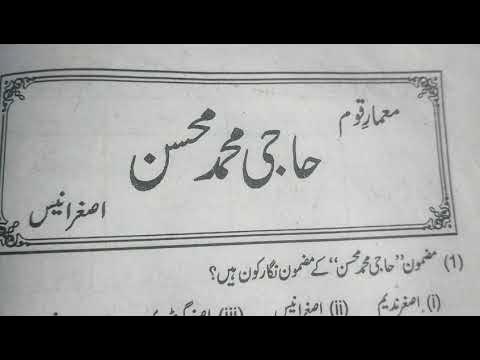 معمارِ قوم
حاجی محمد محسن
اصغر انیس
(1) مضمون ”حاجی محمد محسن“ کے مضمون نگار کون ہیں؟
(i) اصغر ندیم (ii) اصغر انیس (iii)